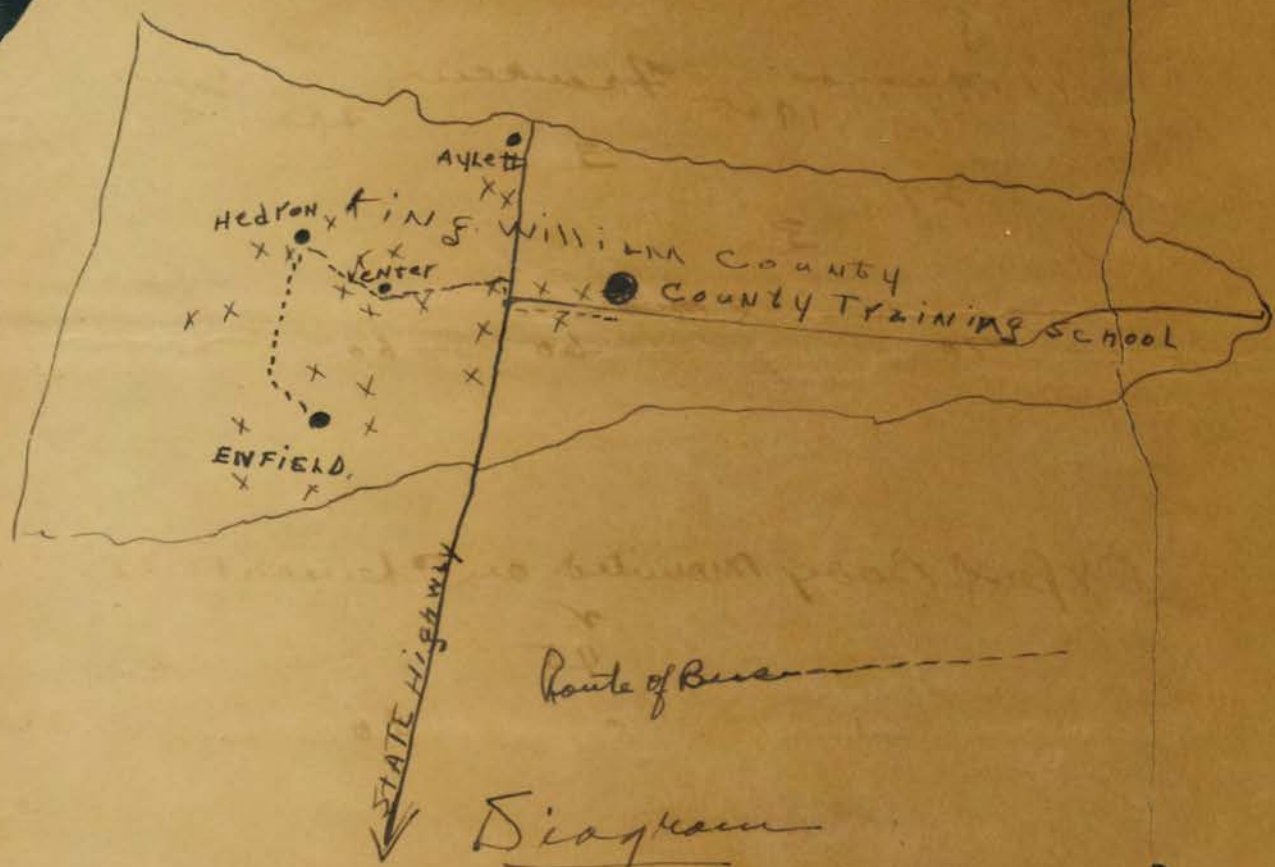 Aylett
Hedron
King William County
Venter
County Training School
ENFIELD.
STATE HigHWAY
Route of Bus
Diagram